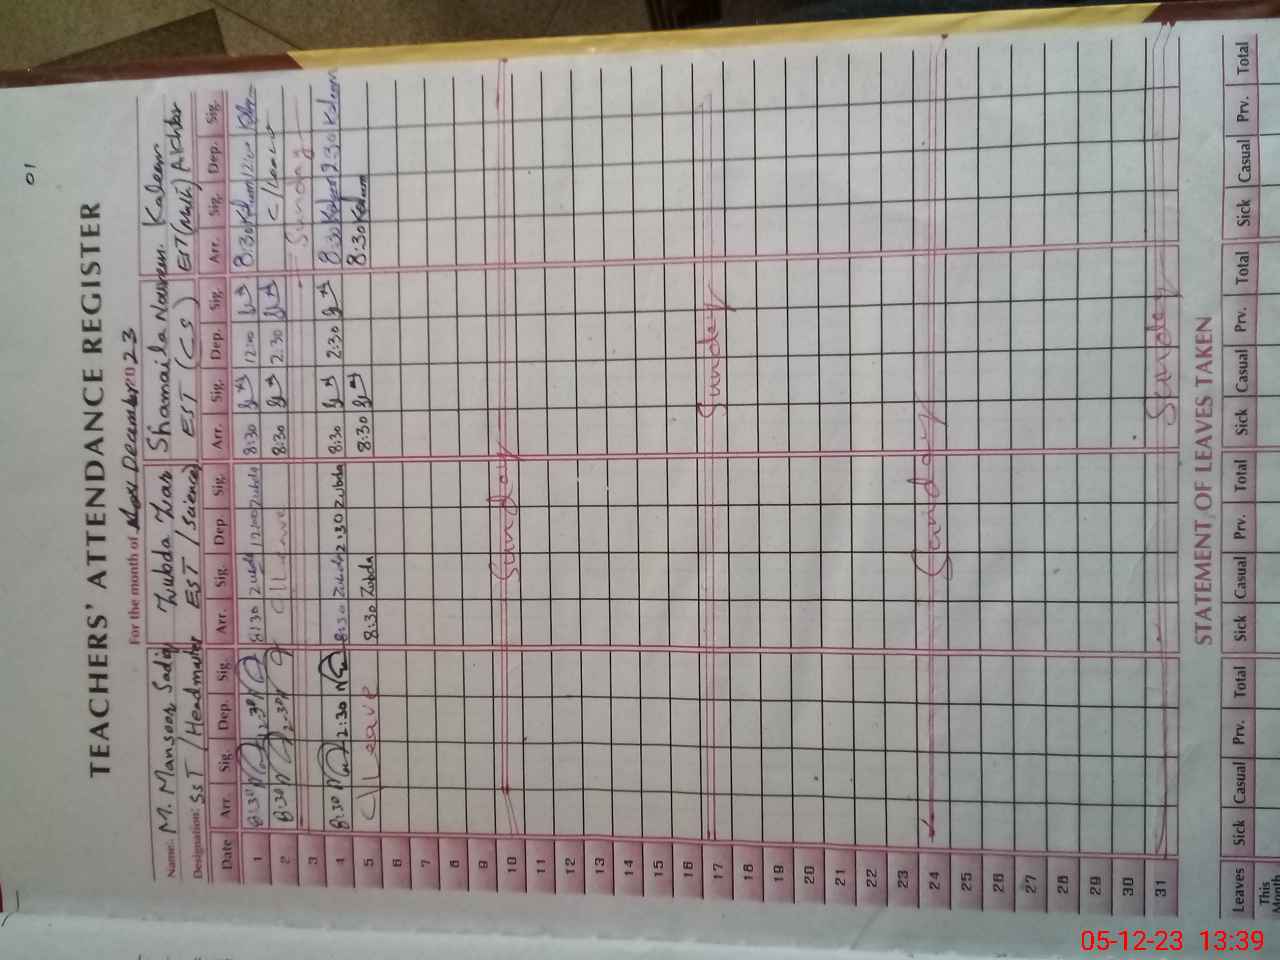 01
TEACHERS' ATTENDANCE REGISTER
For the month of December 2023
Name: M. Mansoor Sadiq Zubda Zar Shamaila Nasreem Kaleem
Designation: SST / Headmaster EST / Science EST (CS) EST (Math) Akhbar
Date Arr. Sig. Dep. Sig. Arr. Sig. Dep Sig. Arr. Sig. Dep. Sig. Arr. Sig. Dep. Sig.
1 8:30 12:30 8:30 Zubda 12:00 Zubda 8:30 12:30 8:30 Kaleem 12:00
2 8:30 2:30 C/Leave 8:30 2:30 C/Leave
3 Sunday
4 8:30 2:30 8:30 Zubda 2:30 Zubda 8:30 2:30 8:30 Kaleem 2:30 Kaleem
5 C/Leave 8:30 Zubda 8:30 8:30 Kaleem
6
7
8
9
10 Sunday
11
12
13
14
15
16
17 Sunday
18
19
20
21
22
23
24 Sunday
25
26
27
28
29
30
31 Sunday
STATEMENT OF LEAVES TAKEN
Leaves Sick Casual Prv. Total Sick Casual Prv. Total Sick Casual Prv. Total Sick Casual Prv. Total
This
Month
05-12-23 13:39